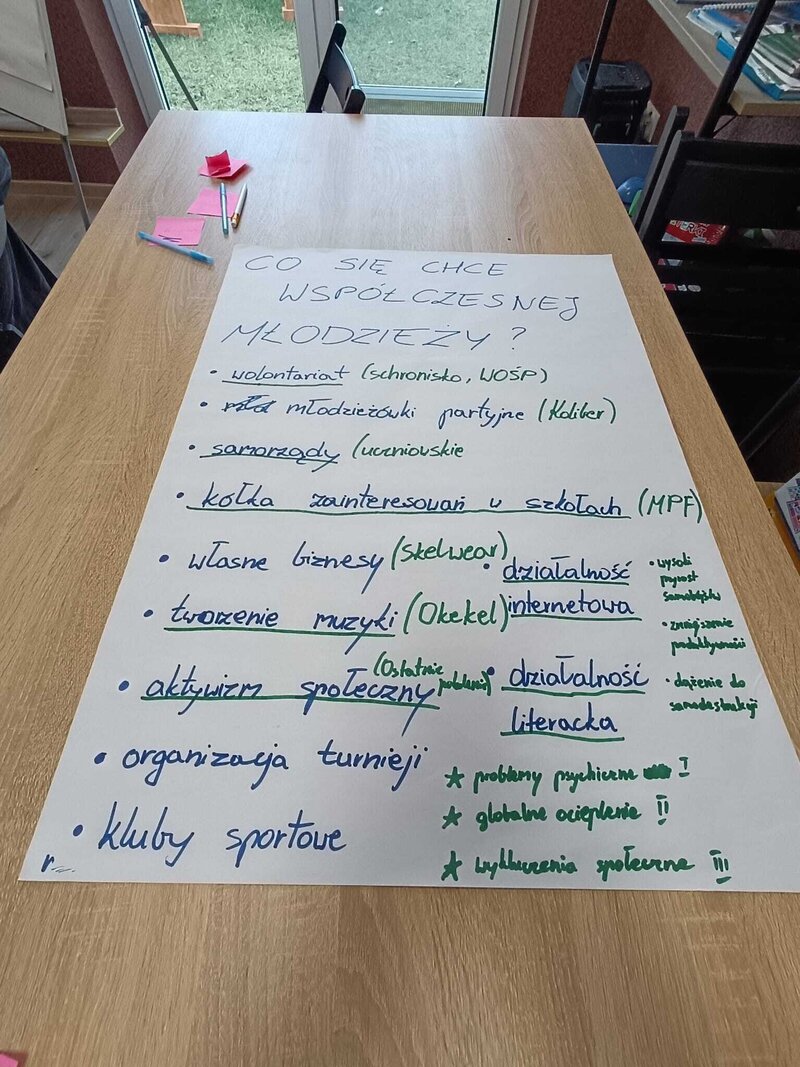 CO SIĘ CHCE
WSPÓŁCZESNEJ
MŁODZIEŻY?
• wolontariat (schronisko, WOŚP)
• młodzieżówki partyjne (Koliber)
• samorządy (uczniowskie
• kółka zainteresowań w szkołach (MPF)
• własne biznesy (Skelwear)
• tworzenie muzyki (Okekel)
• aktywizm społeczny (Ostatnie pokolenie)
• organizacja turnieji
• kluby sportowe
• działalność
internetowa
• działalność
literacka
• wysoki
pryrost
samobójstw
• zmniejszenie
produktywności
• dążenie do
samodestrukcji
★ problemy psychiczne I
★ globalne ocieplenie II
★ wykluczenia społeczne III